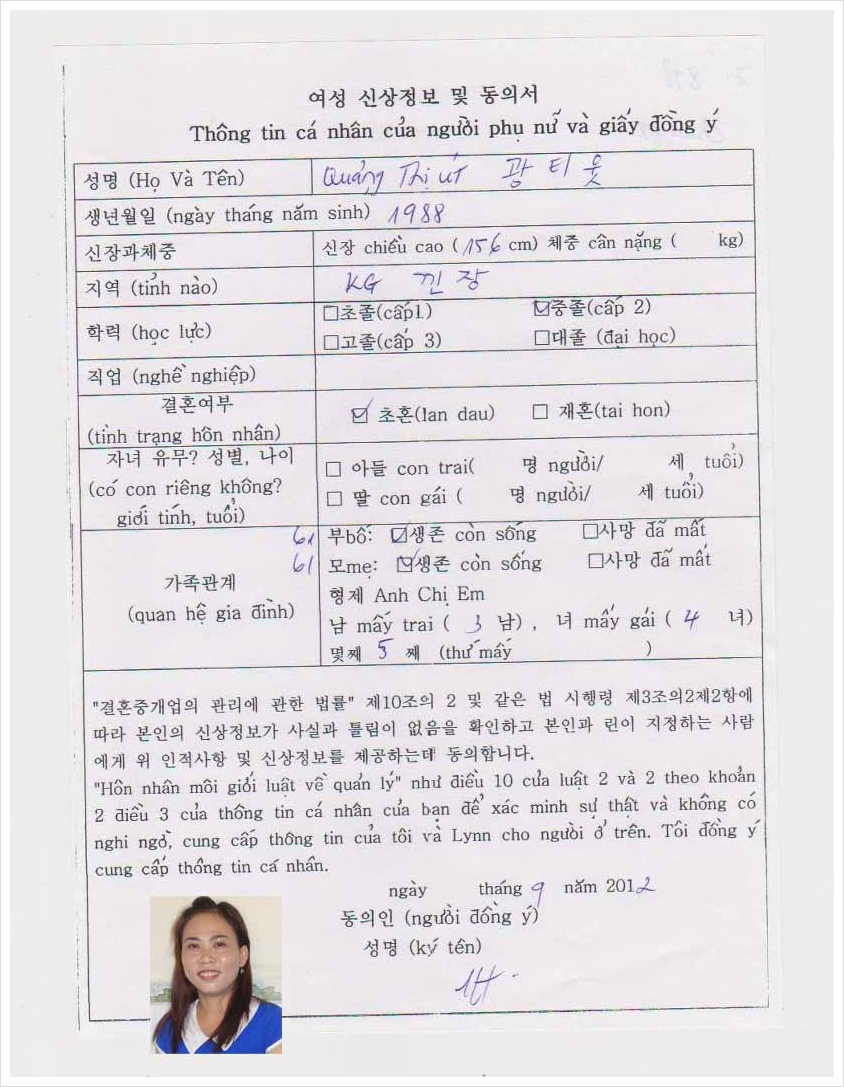 여성 신상정보 및 동의서
Thông tin cá nhân của người phụ nữ và giấy đồng ý
성명 (Họ Và Tên) Quảng Thị Út 광 티 웃
생년월일 (ngày tháng năm sinh) 1988
신장과체중 신장 chiều cao ( 156 cm) 체중 cân nặng ( kg)
지역 (tỉnh nào) KG 낀 장
학력 (học lực) □초졸(cấp1) ☑중졸(cấp 2)
□고졸(cấp 3) □대졸 (đại học)
직업 (nghề nghiệp)
결혼여부
(tình trạng hôn nhân) ☑ 초혼(lan dau) □ 재혼(tai hon)
자녀 유무? 성별, 나이
(có con riêng không?
giới tính, tuổi)
□ 아들 con trai( 명 người/ 세, tuổi)
□ 딸 con gái ( 명 người/ 세 tuổi)
가족관계
(quan hệ gia đình)
61 부bố: ☑생존 còn sống □사망 đã mất
61 모mẹ: ☑생존 còn sống □사망 đã mất
형제 Anh Chị Em
남 mấy trai ( 3 남) , 녀 mấy gái ( 4 녀)
몇째 5 째 (thứ mấy )
"결혼중개업의 관리에 관한 법률" 제10조의 2 및 같은 법 시행령 제3조의2제2항에
따라 본인의 신상정보가 사실과 틀림이 없음을 확인하고 본인과 린이 지정하는 사람
에게 위 인적사항 및 신상정보를 제공하는데 동의합니다.
"Hôn nhân môi giới luật về quản lý" như điều 10 của luật 2 và 2 theo khoản
2 điều 3 của thông tin cá nhân của bạn để xác minh sự thật và không có
nghi ngờ, cung cấp thông tin của tôi và Lynn cho người ở trên. Tôi đồng ý
cung cấp thông tin cá nhân.
ngày tháng 9 năm 2012
동의인 (người đồng ý)
성명 (ký tên)